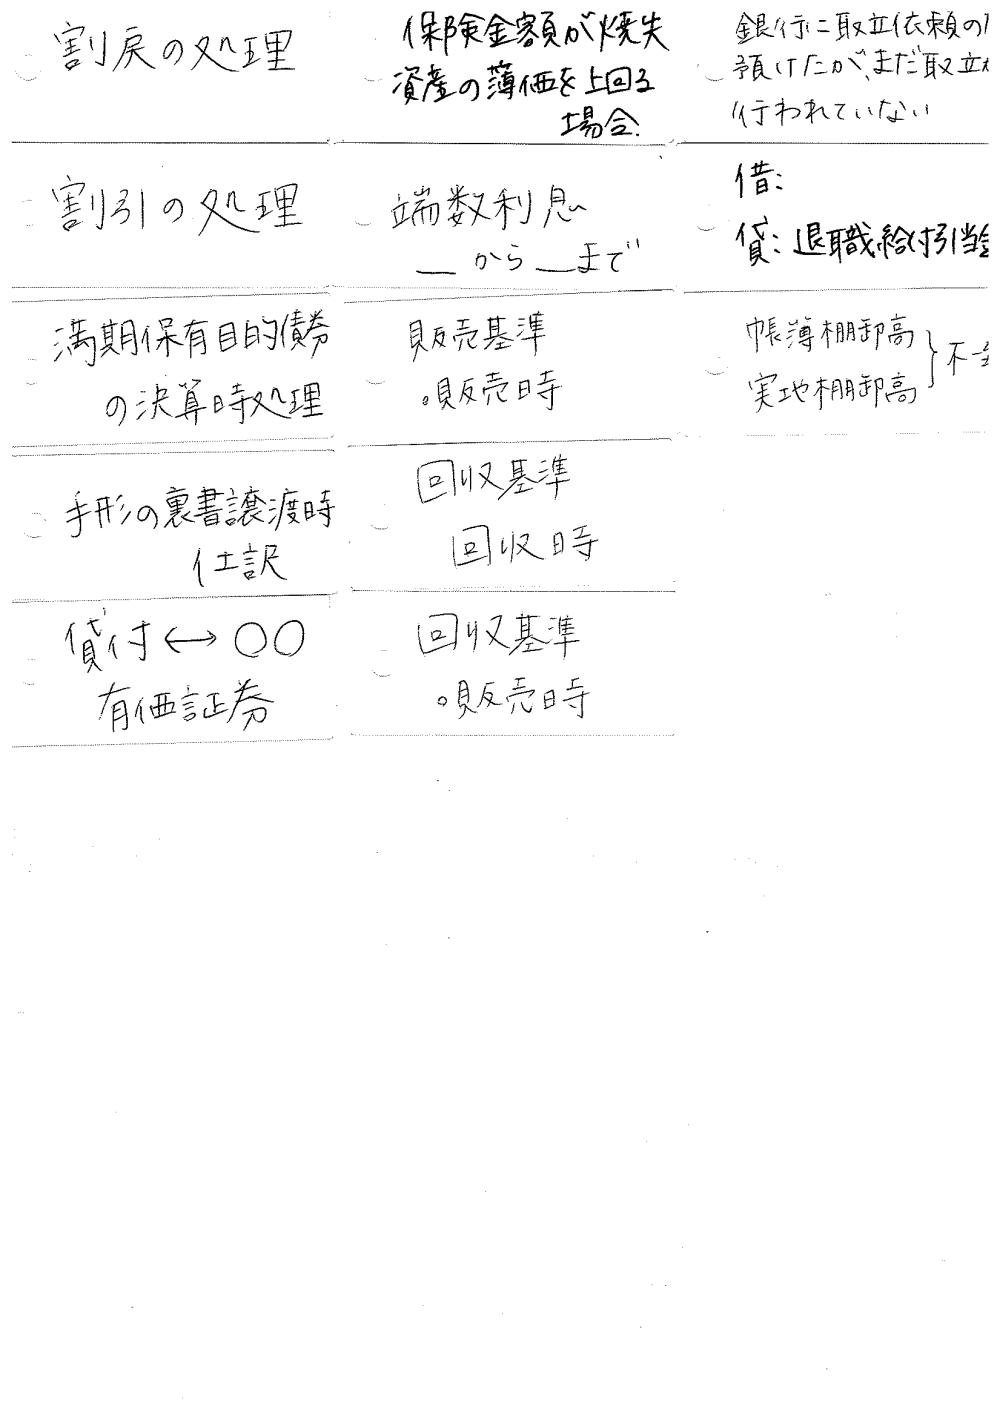 割戻の処理
割引の処理
満期保有目的債券
の決算時処理
手形の裏書譲渡時
仕訳
貸付↔〇〇
有価証券
保険金額が焼失
資産の薄価を上回る
場合.
端数利息
_から_まで
販売基準
。販売時
回収基準
回収時
回収基準
。販売時
銀行に取立依頼の
預けたが、まだ取立
行われていない
借:
貸:退職給付引当金
帳簿棚卸高
実地棚卸高 } 不一